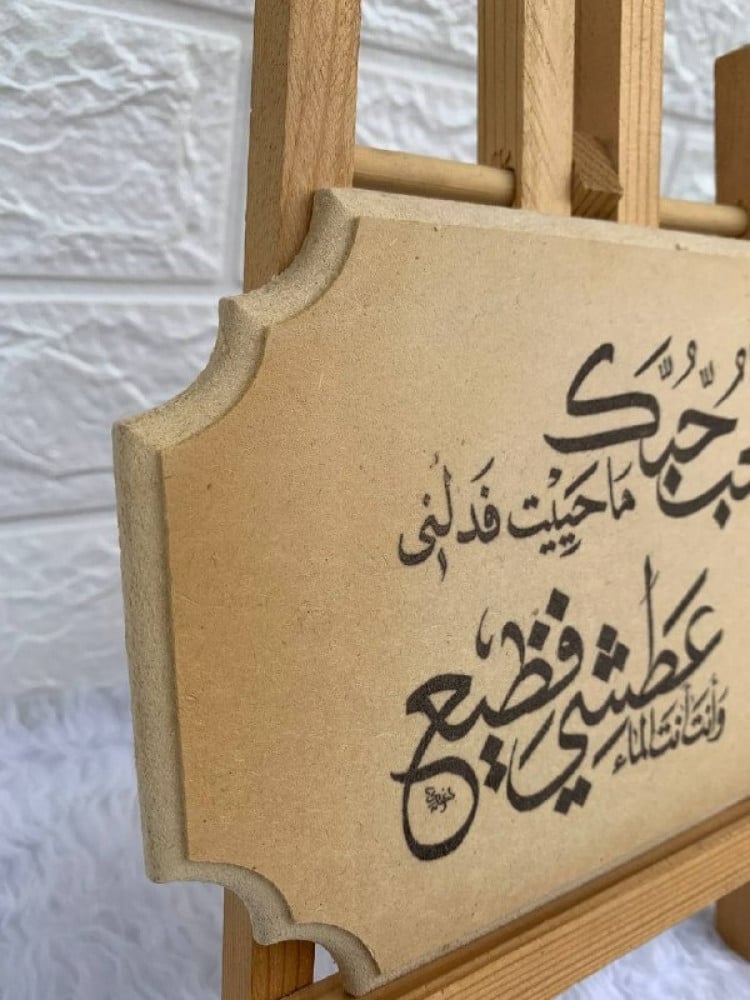 حُبَّكَ
مَا حَيِيْت فَدَلِّنِي
عَطَشِي فَظِيع
وَأَنتَ أَنتَ الماء